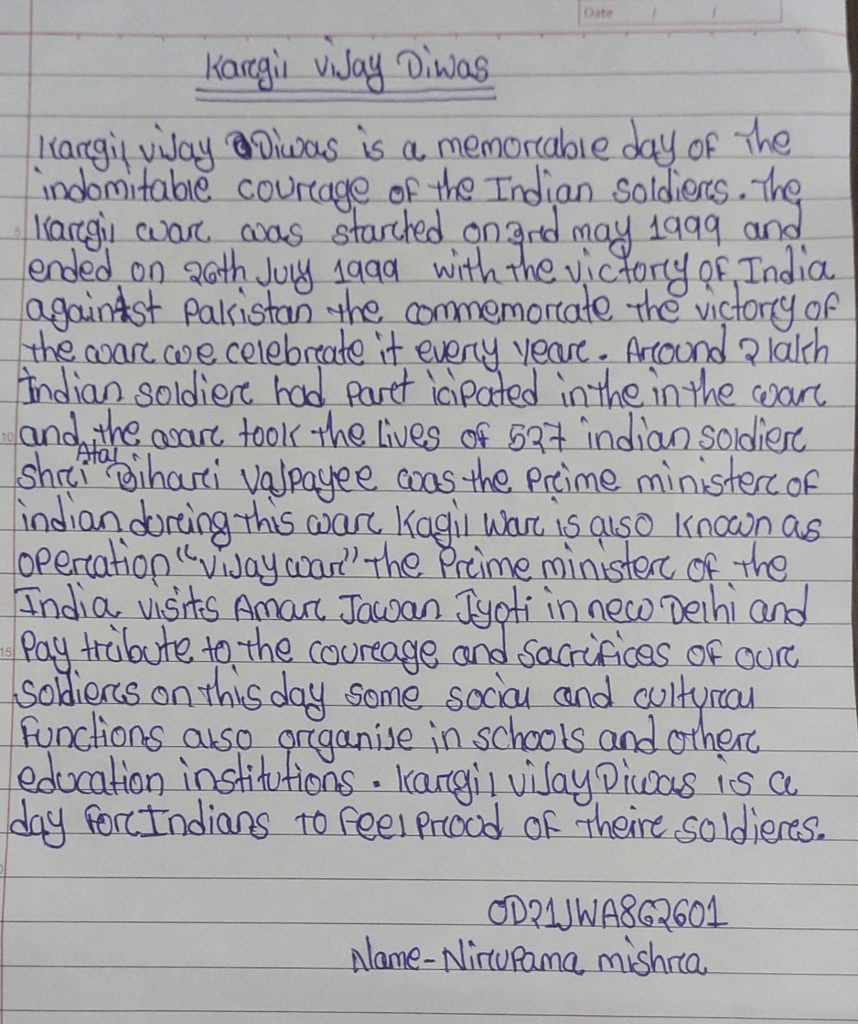 Date / /
Kargil Vijay Diwas
Kargil vijay Diwas is a memorable day of the
indomitable courage of the Indian soldiers. The
Kargil war was started on 3rd may 1999 and
ended on 26th July 1999 with the victory of India
against Pakistan the commemorate the victory of
the war we celebrate it every year. Around 2 lakh
Indian soldier had part icipated in the in the war
and the war took the lives of 527 indian soldier
Shri Atal Bihari Vajpayee was the Prime minister of
indian during this war Kagil War is also known as
operation "vijay war" the Prime minister of the
India visits Amar Jawan Jyoti in new Delhi and
Pay tribute to the courage and sacrifices of our
soldiers on this day some social and cultural
functions also organise in schools and other
education institutions. Kargil vijay Diwas is a
day for Indians to feel prood of their soldieres.
OD21JWA862601
Name-Nirupama mishra